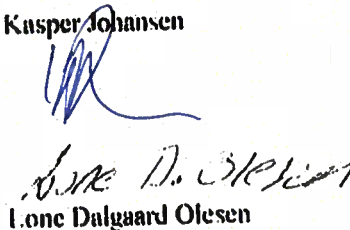 Kasper Johansen
Lone D. Olesen
Lone Dalgaard Olesen